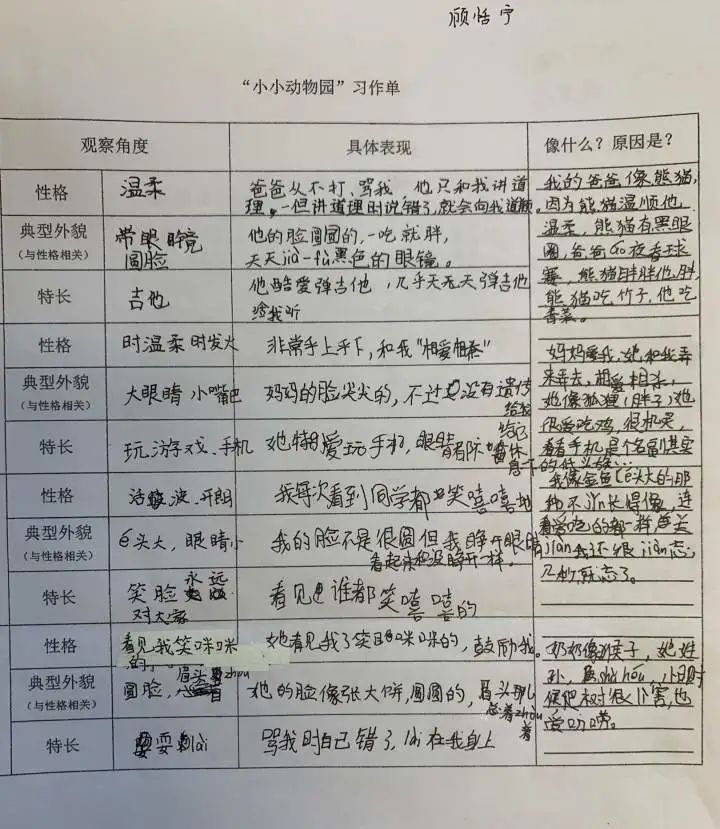 顾恬宁
“小小动物园”习作单
观察角度 具体表现 像什么？原因是？
性格 温柔 爸爸从不打、骂我，他只和我讲道
理。一但讲道理时说错了，就会向我道歉。
典型外貌 带眼睛竟 他的脸圆圆的，一吃就胖，
（与性格相关） 圆脸 天天jià-fù黑色的眼镜。
特长 吉他 他酷爱弹吉他，几乎天无天弹吉他
给我听
我的爸爸像熊猫，
因为熊猫温顺他
温柔，熊猫有黑眼
圈，爸爸 夜看球
赛，熊猫胖胖他胖，
熊猫吃竹子，他吃
青菜。
性格 时温柔 时发火 非常手上手下，和我“相爱相杀”
典型外貌 大眼睛 小嘴巴 妈妈的脸尖尖的，不过也没有遗传
（与性格相关） 给我
特长 玩游戏、手机 她特别爱玩手机，眼睛
妈妈爱我，她和我弄
来弄去，相爱相杀，
她像狐狸（胖子）她
很爱吃鸡，很机灵，
看看手机是个名副其实
的低头族……
性格 活泼、开朗 我每次看到同学都笑嘻嘻地
典型外貌 é头大，眼睛小 我的脸不是很圆但我睁开眼睛
（与性格相关） 看起来和没睁开一样。
特长 笑脸永远 看见谁都笑嘻嘻的
对大家
我像金鱼（é头大的那
种不jīn长得像，连
爱吃的都一样，鱼
jiàn我还很jiàn忘，
几秒就忘了。
性格 看见我笑咪咪 她看见我了笑咪咪的，鼓励我。
的
典型外貌 圆脸，眉头zhòu 她的脸像张大饼，圆圆的，眉头那儿
（与性格相关） 总着zhòu
着
特长 耍lài 骂我时自己错了，lài在我身上
奶奶像猴子，她姓
孙，属 hóu，小时
候爬树很厉害，也
爱叨唠。